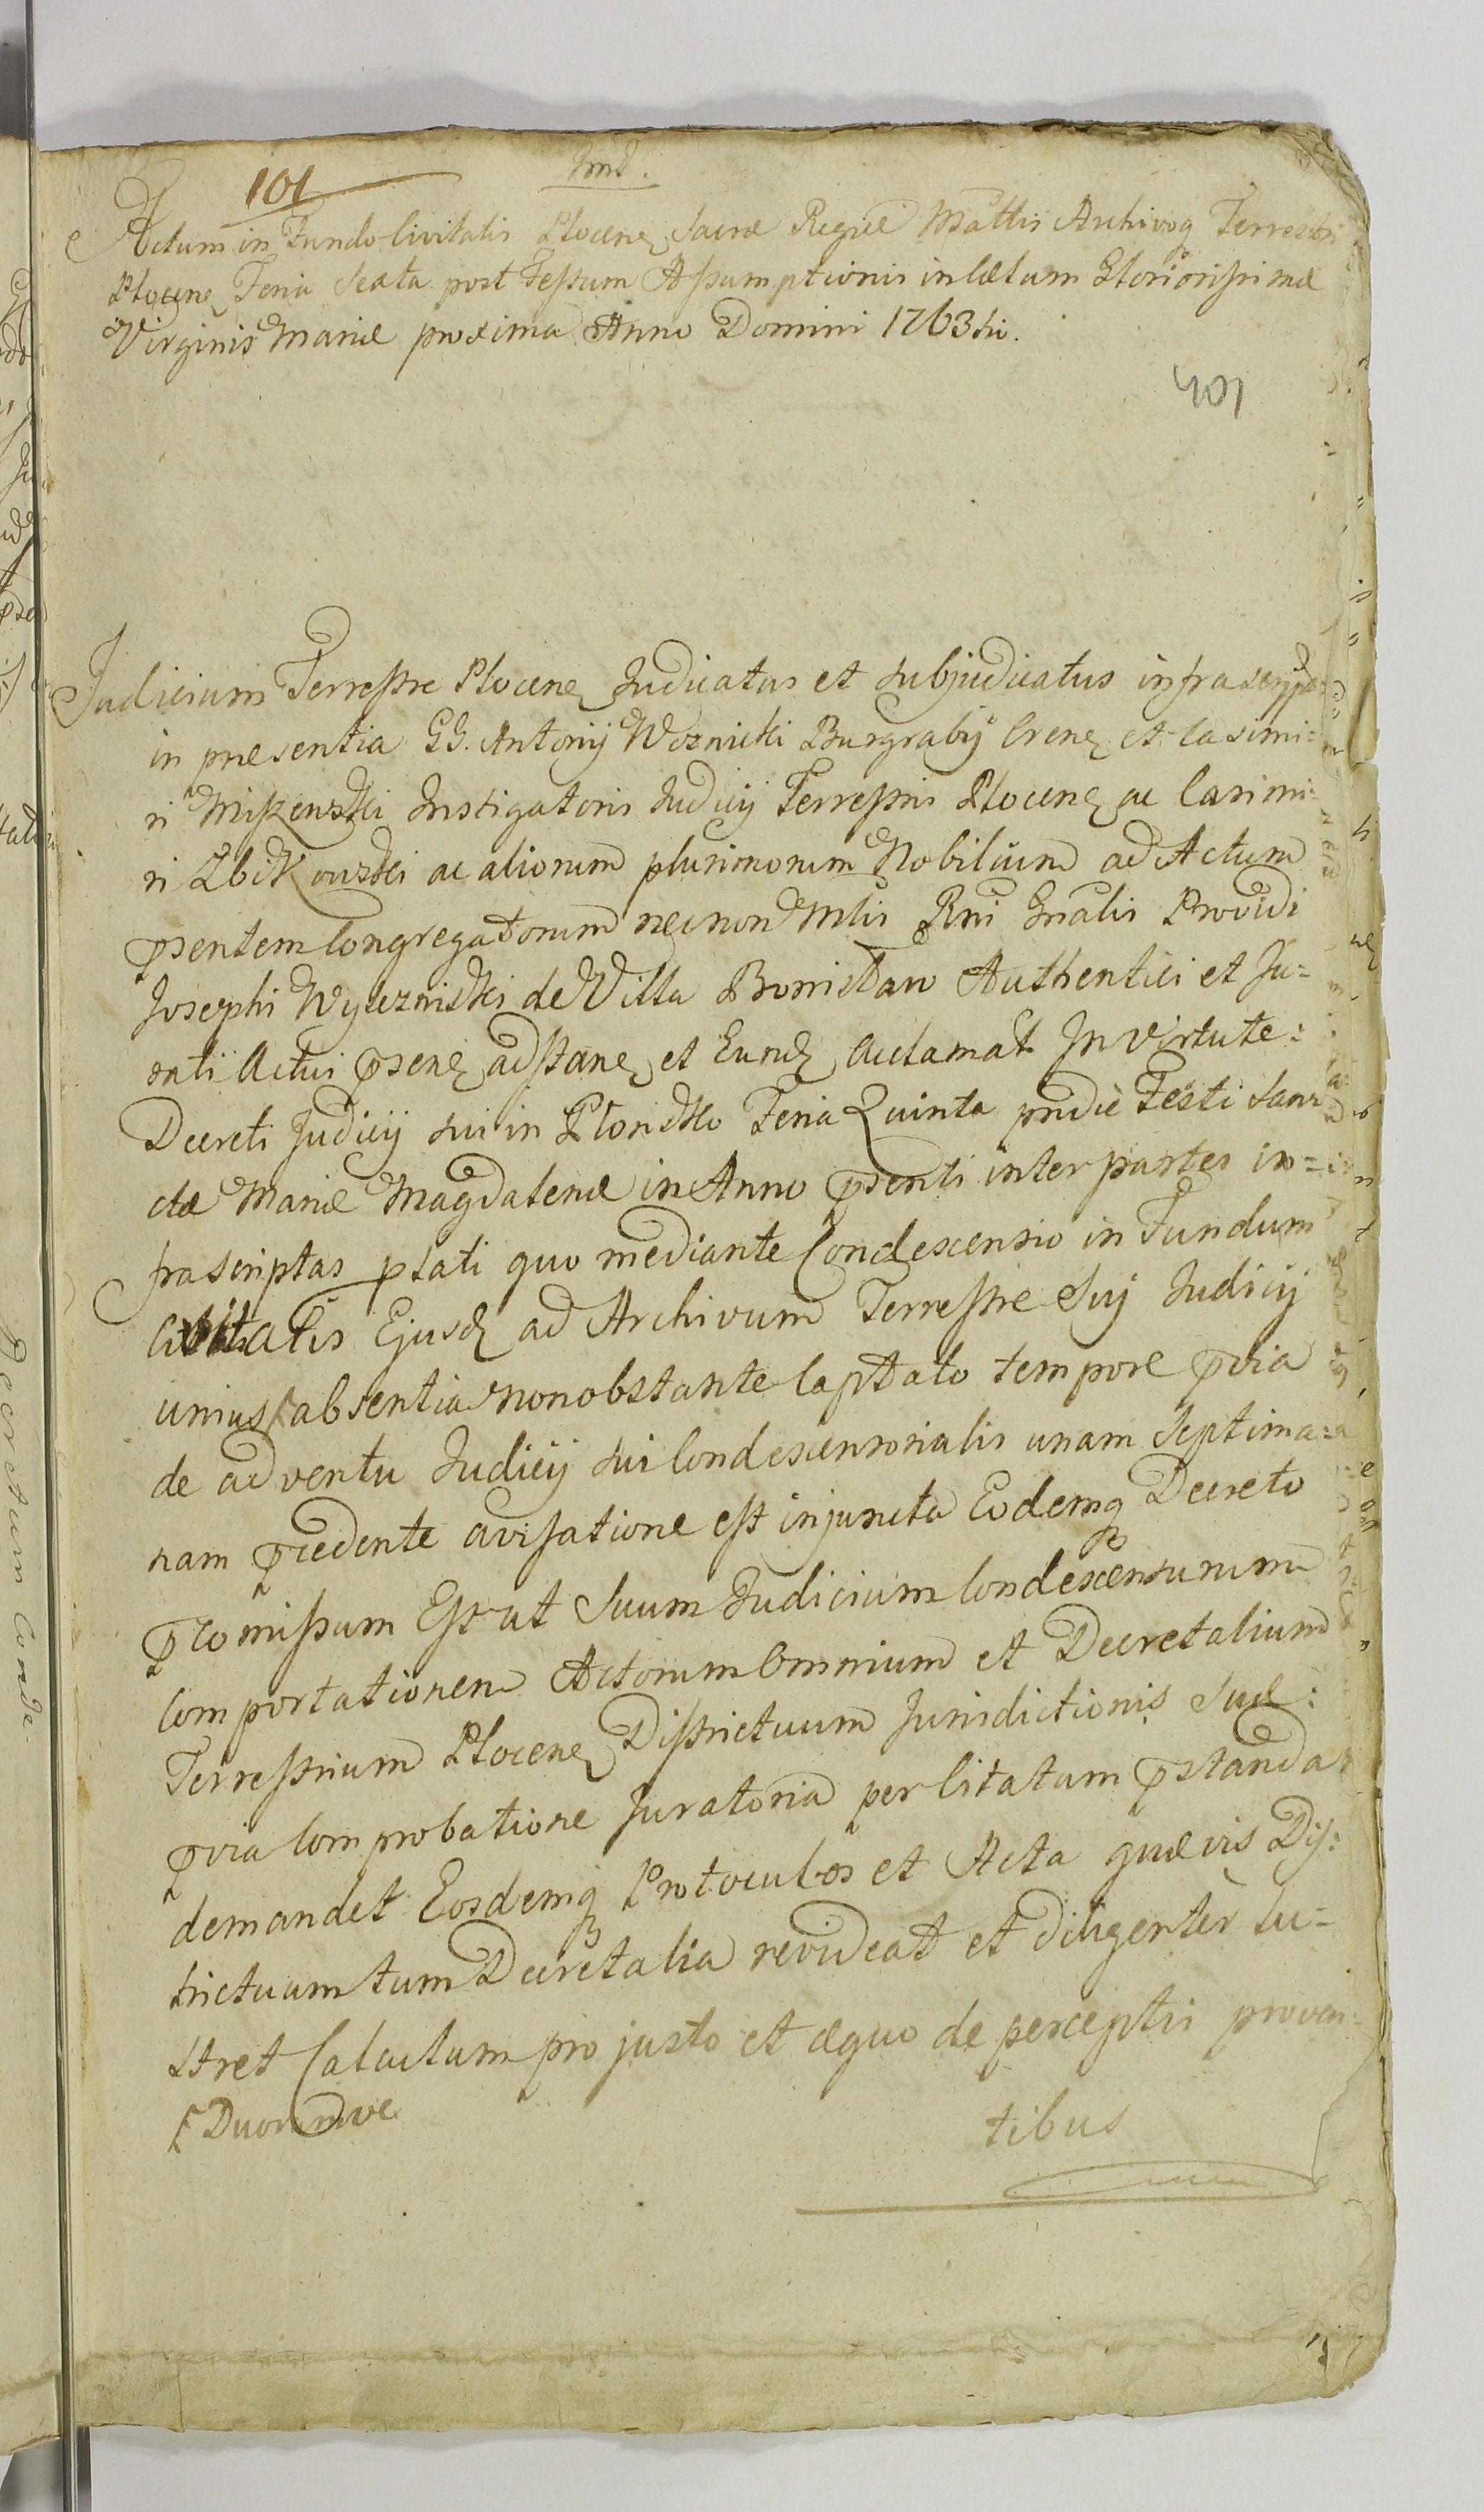 101
Imd.
Actum in Fundo Civitatis Plocen. Sacræ Regiæ Mattis Archivoq Terrestri
Plocen. Feria Sexta post Festum Assumptionis in Cælum Gloriosissimæ
Virginis Mariæ proxima Anno Domini 1763tio.
401
Judicium Terrestre Plocen. Judicatus et Subjudicatus infrascript
in præsentia GG. Antonij Woznicki Burgrabij Crenen. et Casimi=
ri Miszewski Instigatoris Judicij Terrestris Plocen. ac Casimi=
ri Zbikowski ac aliorum plurimorum Nobilium ad Actum
pſentem Congregatorum necnon Mlis Rni Gnalis Providi
Josephi Wyluznicki de Villa Bonisław Authentici et Ju=
rati Actui pſen. adstan. et Eund. acclamat. In Virtute:
Decreti Judicij sui in Płonsko Feria Quinta pridie Festi San=
ctæ Mariæ Magdalenæ in Anno pſenti inter partes in=
frascriptas plati quo mediante Condescensio in Fundum
Civitatis Ejusd. ad Archivum Terrestre Sui Judicij
unius absentia nonobstante Captato tempore pvia
de adventu Judicij sui Condescensorialis unam Septima=
nam pcedente avisatione est injuncta Eodemq Decreto
pcomissum Est ut Suum Judicium Condescensurum
Comportationem Actorum Omnium et Decretalium
Terrestrium Plocen. Districtuum Jurisdictionis Suæ:
pvia Comprobatione Juratoria per Citatum pstanda
demandet Eosdemq Protoculos et Acta quævis Dis:
trictuum tum Decretalia revideat et diligenter lu=
stret Calculum pro justo et æquo de perceptis proven=
Duorumve
tibus
Decretum Conde.